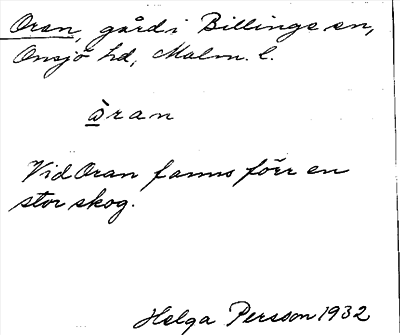 Oran, gård i Billinge sn,
Onsjö hd, Malm. l.
òran
Vid Oran fanns förr en
stor skog.
Helga Persson 1932